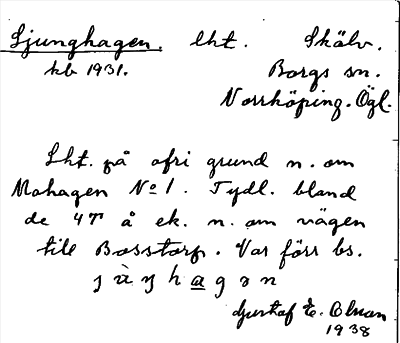 Ljunghagen. lht. Skälv.
kb 1931. Borgs sn.
Norrköping. Ögl.
Lht. på ofri grund n. om
Mohagen No 1. Tydl. bland
de 4 å ek. n. om vägen
till Bosstorp. Var förr bs.
Gustaf E. Olson
1938